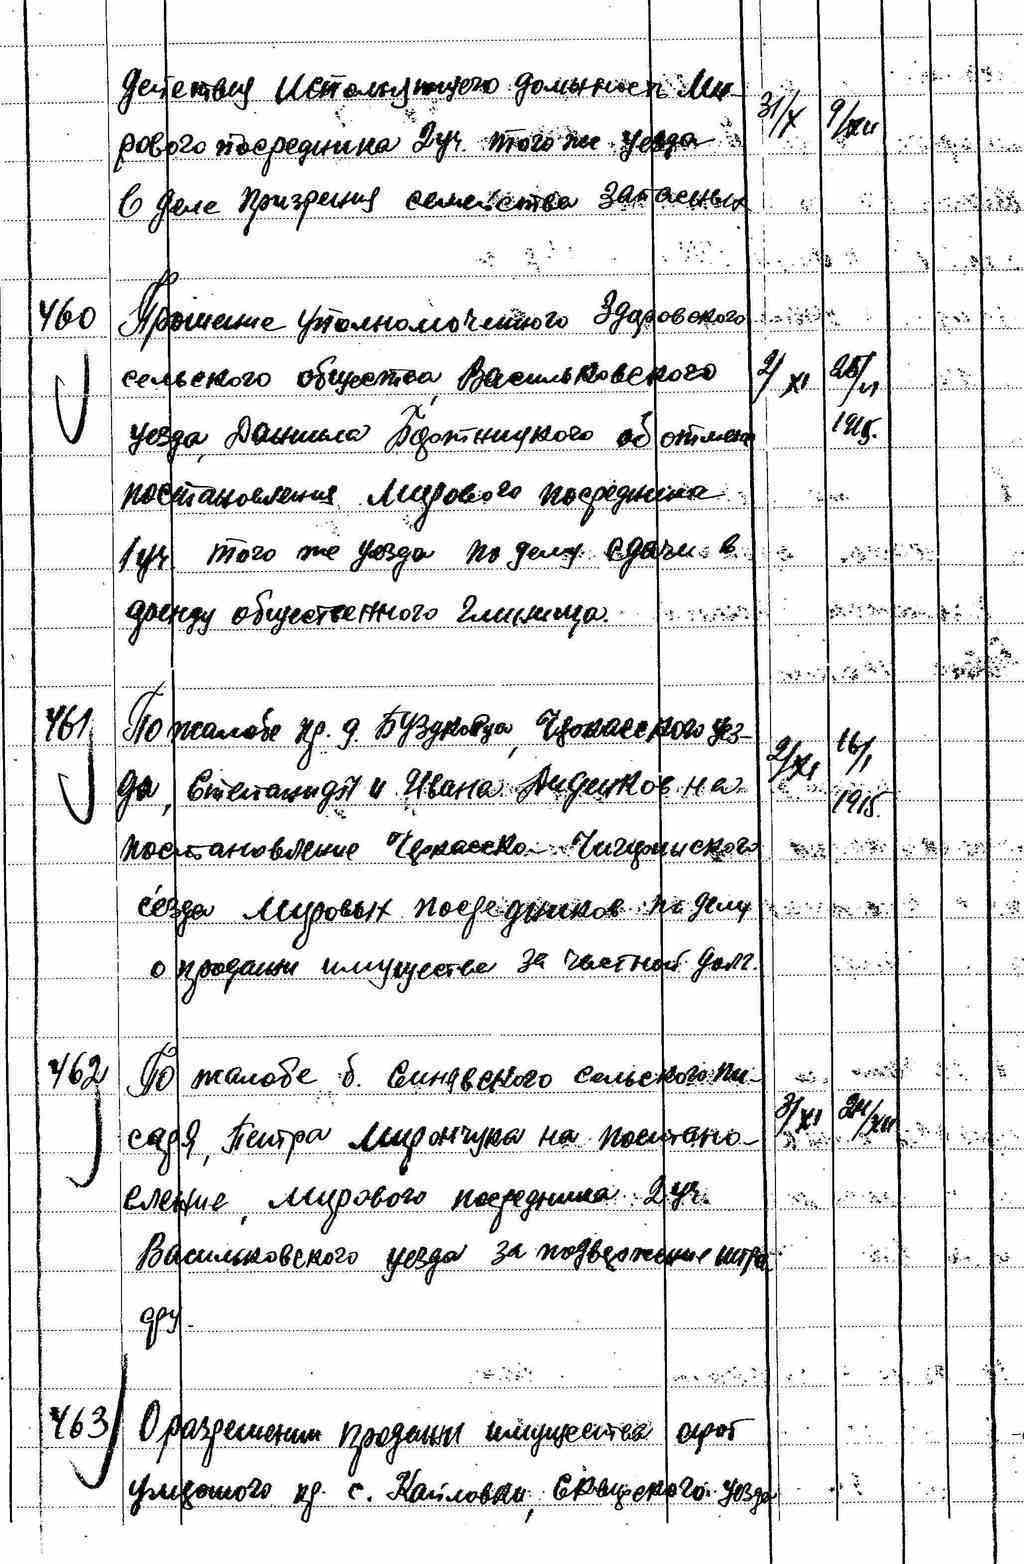 действия Исполняющего должность Ми-
рового посредника 2 уч. того же уезда
31/X 9/XII
в деле призрения семейства запасных
460 Прошение уполномоченного Здоровского
сельского общества, Васильковского
2/XI 25/VI 1915.
уезда, Даниила об отмене
постановления Мирового посредника
1 уч. того же уезда по делу сдачи в
аренду общественного глинища.
461 По жалобе кр. д. Буздуковца, Черкасского уез-
да, Степаниды и Ивана Дидиков на
2/XI 16/I 1915.
постановление Черкасско-Чигиринского
съезда Мировых посредников по делу
о продажи имущества за частной долг.
462 По жалобе б. Синявского сельского пи-
саря, Петра Мирончука на постано-
3/XI 24/XII
вление, Мирового посредника 2 уч.
Васильковского уезда за подвержение штра
фу.
463 О разрешении продажи имущества сирот
умершего кр. с. Сквирского уезда